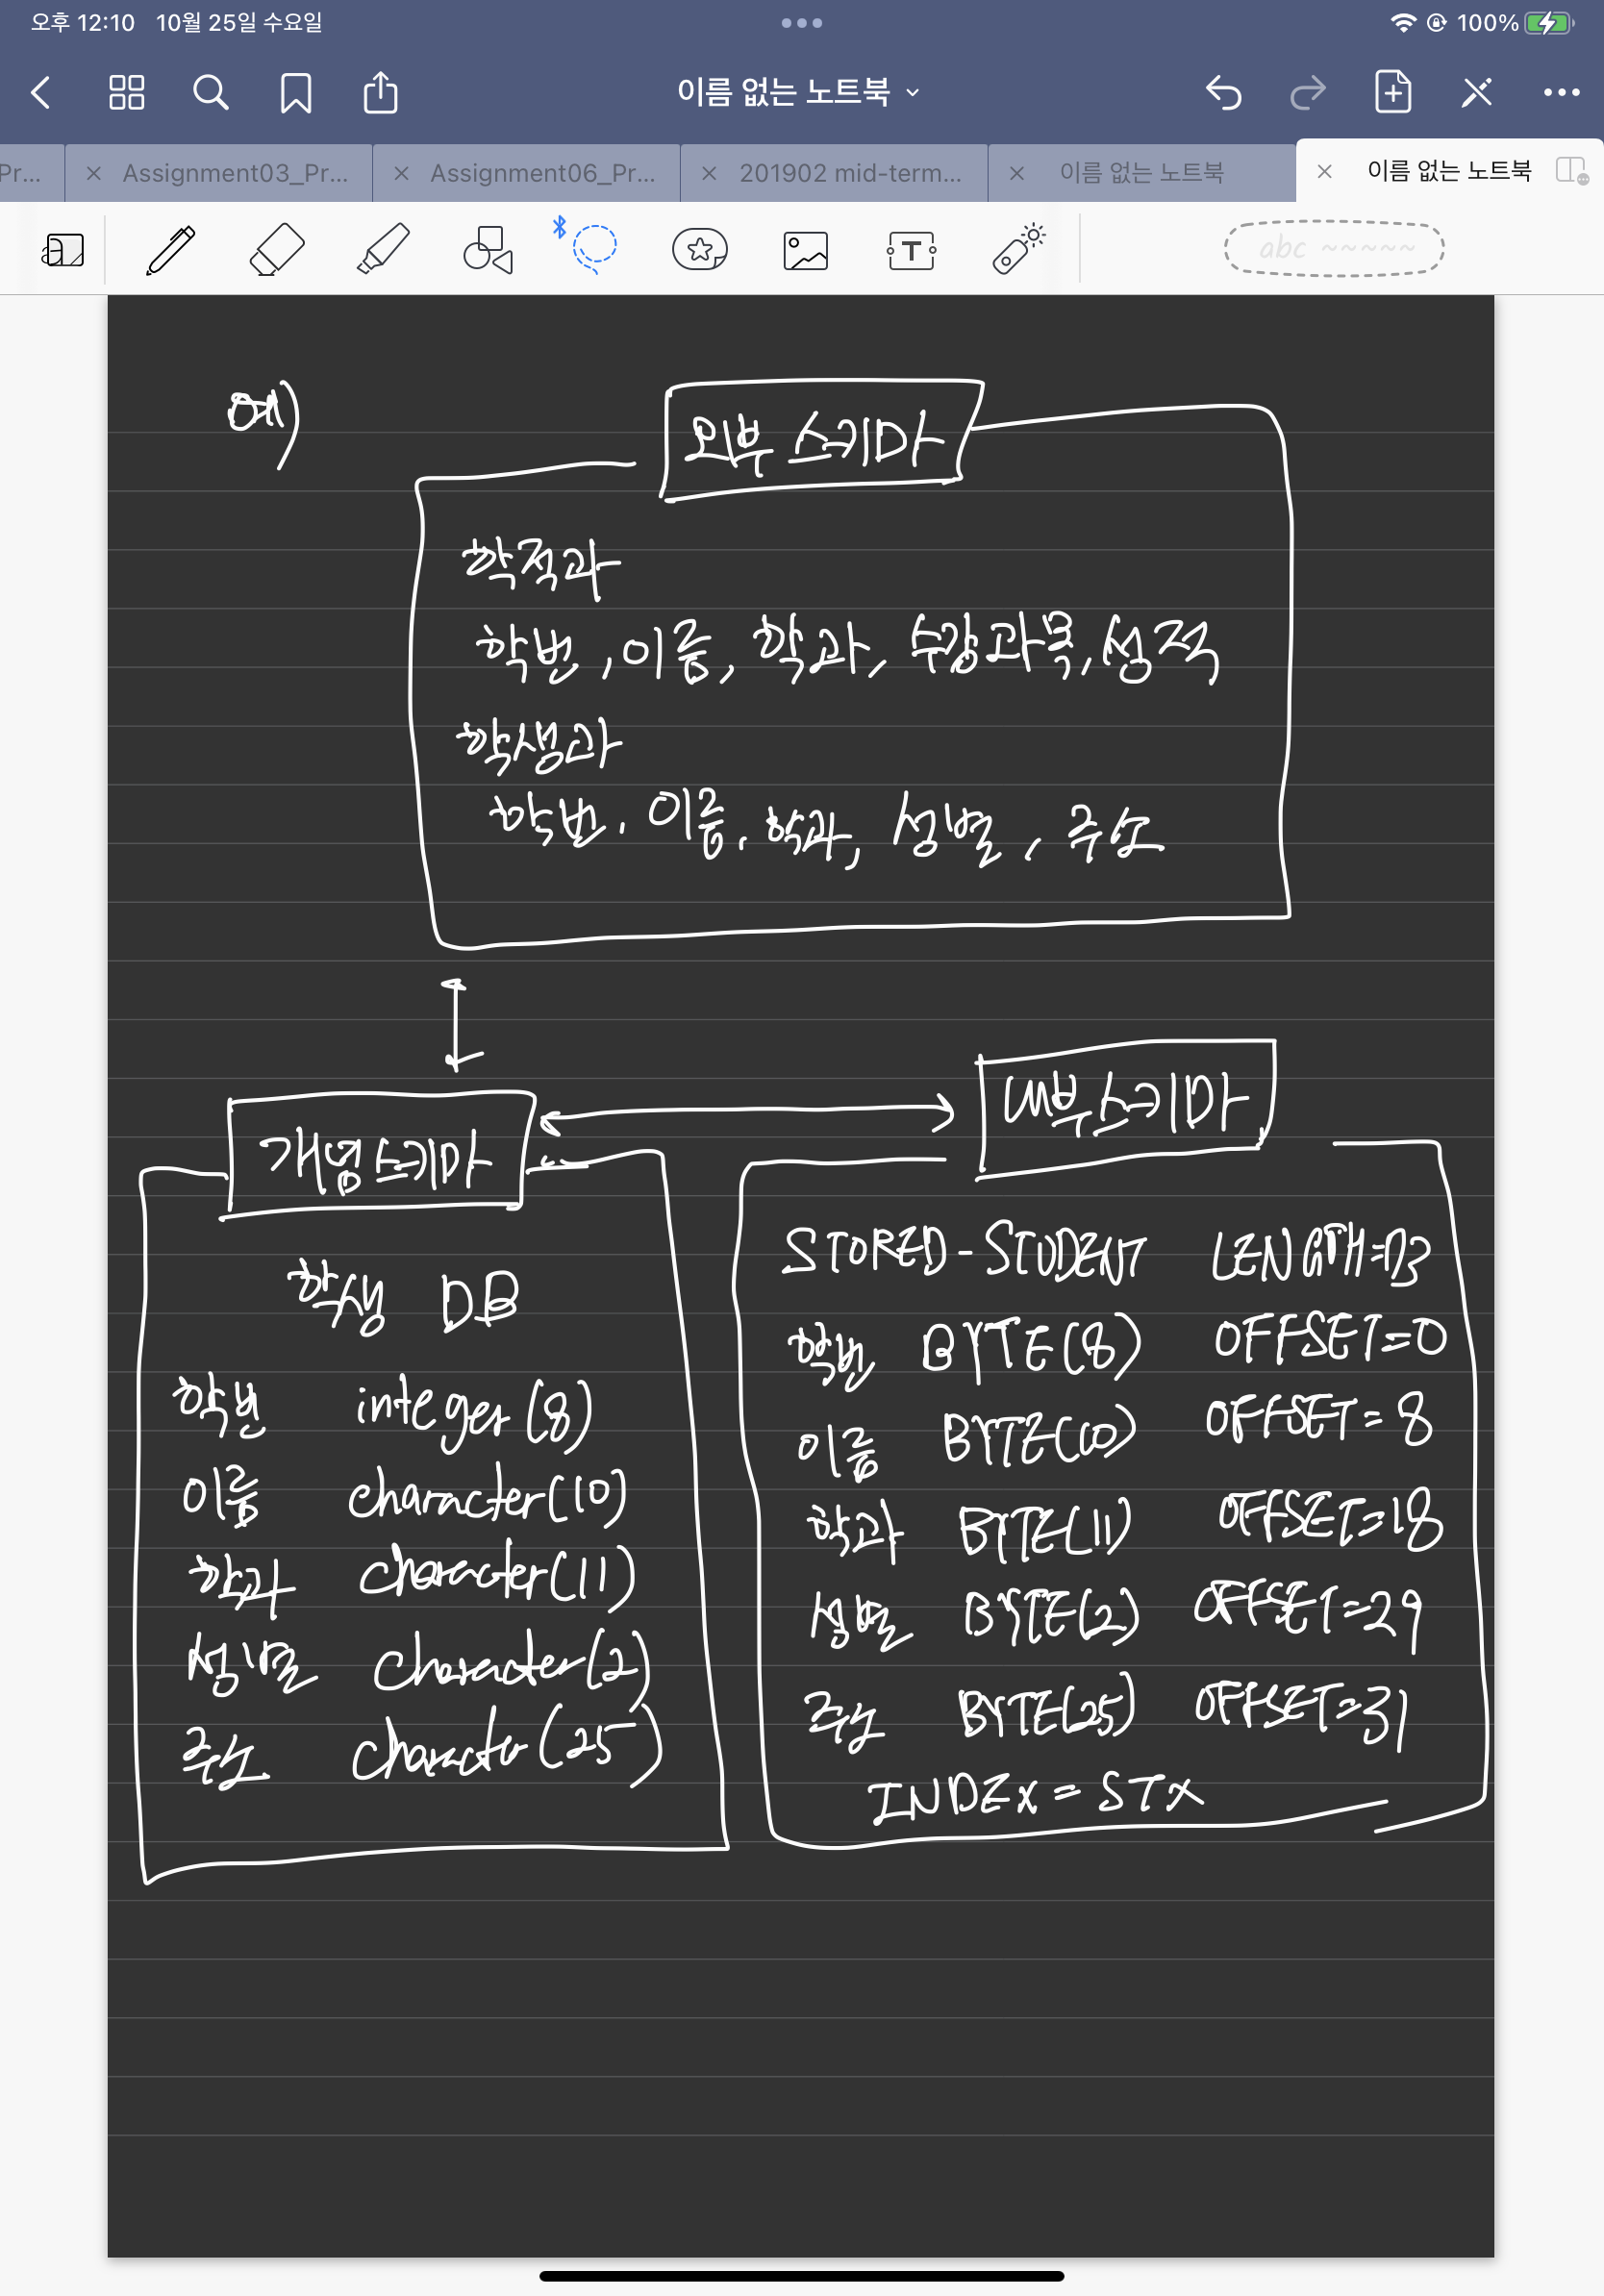 오후 12:10 10월 25일 수요일
100%
이름 없는 노트북
Pr...
Assignment03_Pr...
Assignment06_Pr...
201902 mid-term...
이름 없는 노트북
이름 없는 노트북
abc ~~~~~
예)
외부 스키마
학적과
학번, 이름, 학과, 수강과목, 성적
학생과
학번, 이름, 학과, 성별, 주소
개념스키마
학생 DB
학번 integer(8)
이름 character(10)
학과 character(11)
성별 character(2)
주소 character(25)
내부스키마
STORED-STUDENT LENGTH=73
학번 BYTE(8) OFFSET=0
이름 BYTE(10) OFFSET=8
학과 BYTE(11) OFFSET=18
성별 BYTE(2) OFFSET=29
주소 BYTE(25) OFFSET=31
INDEX=STX